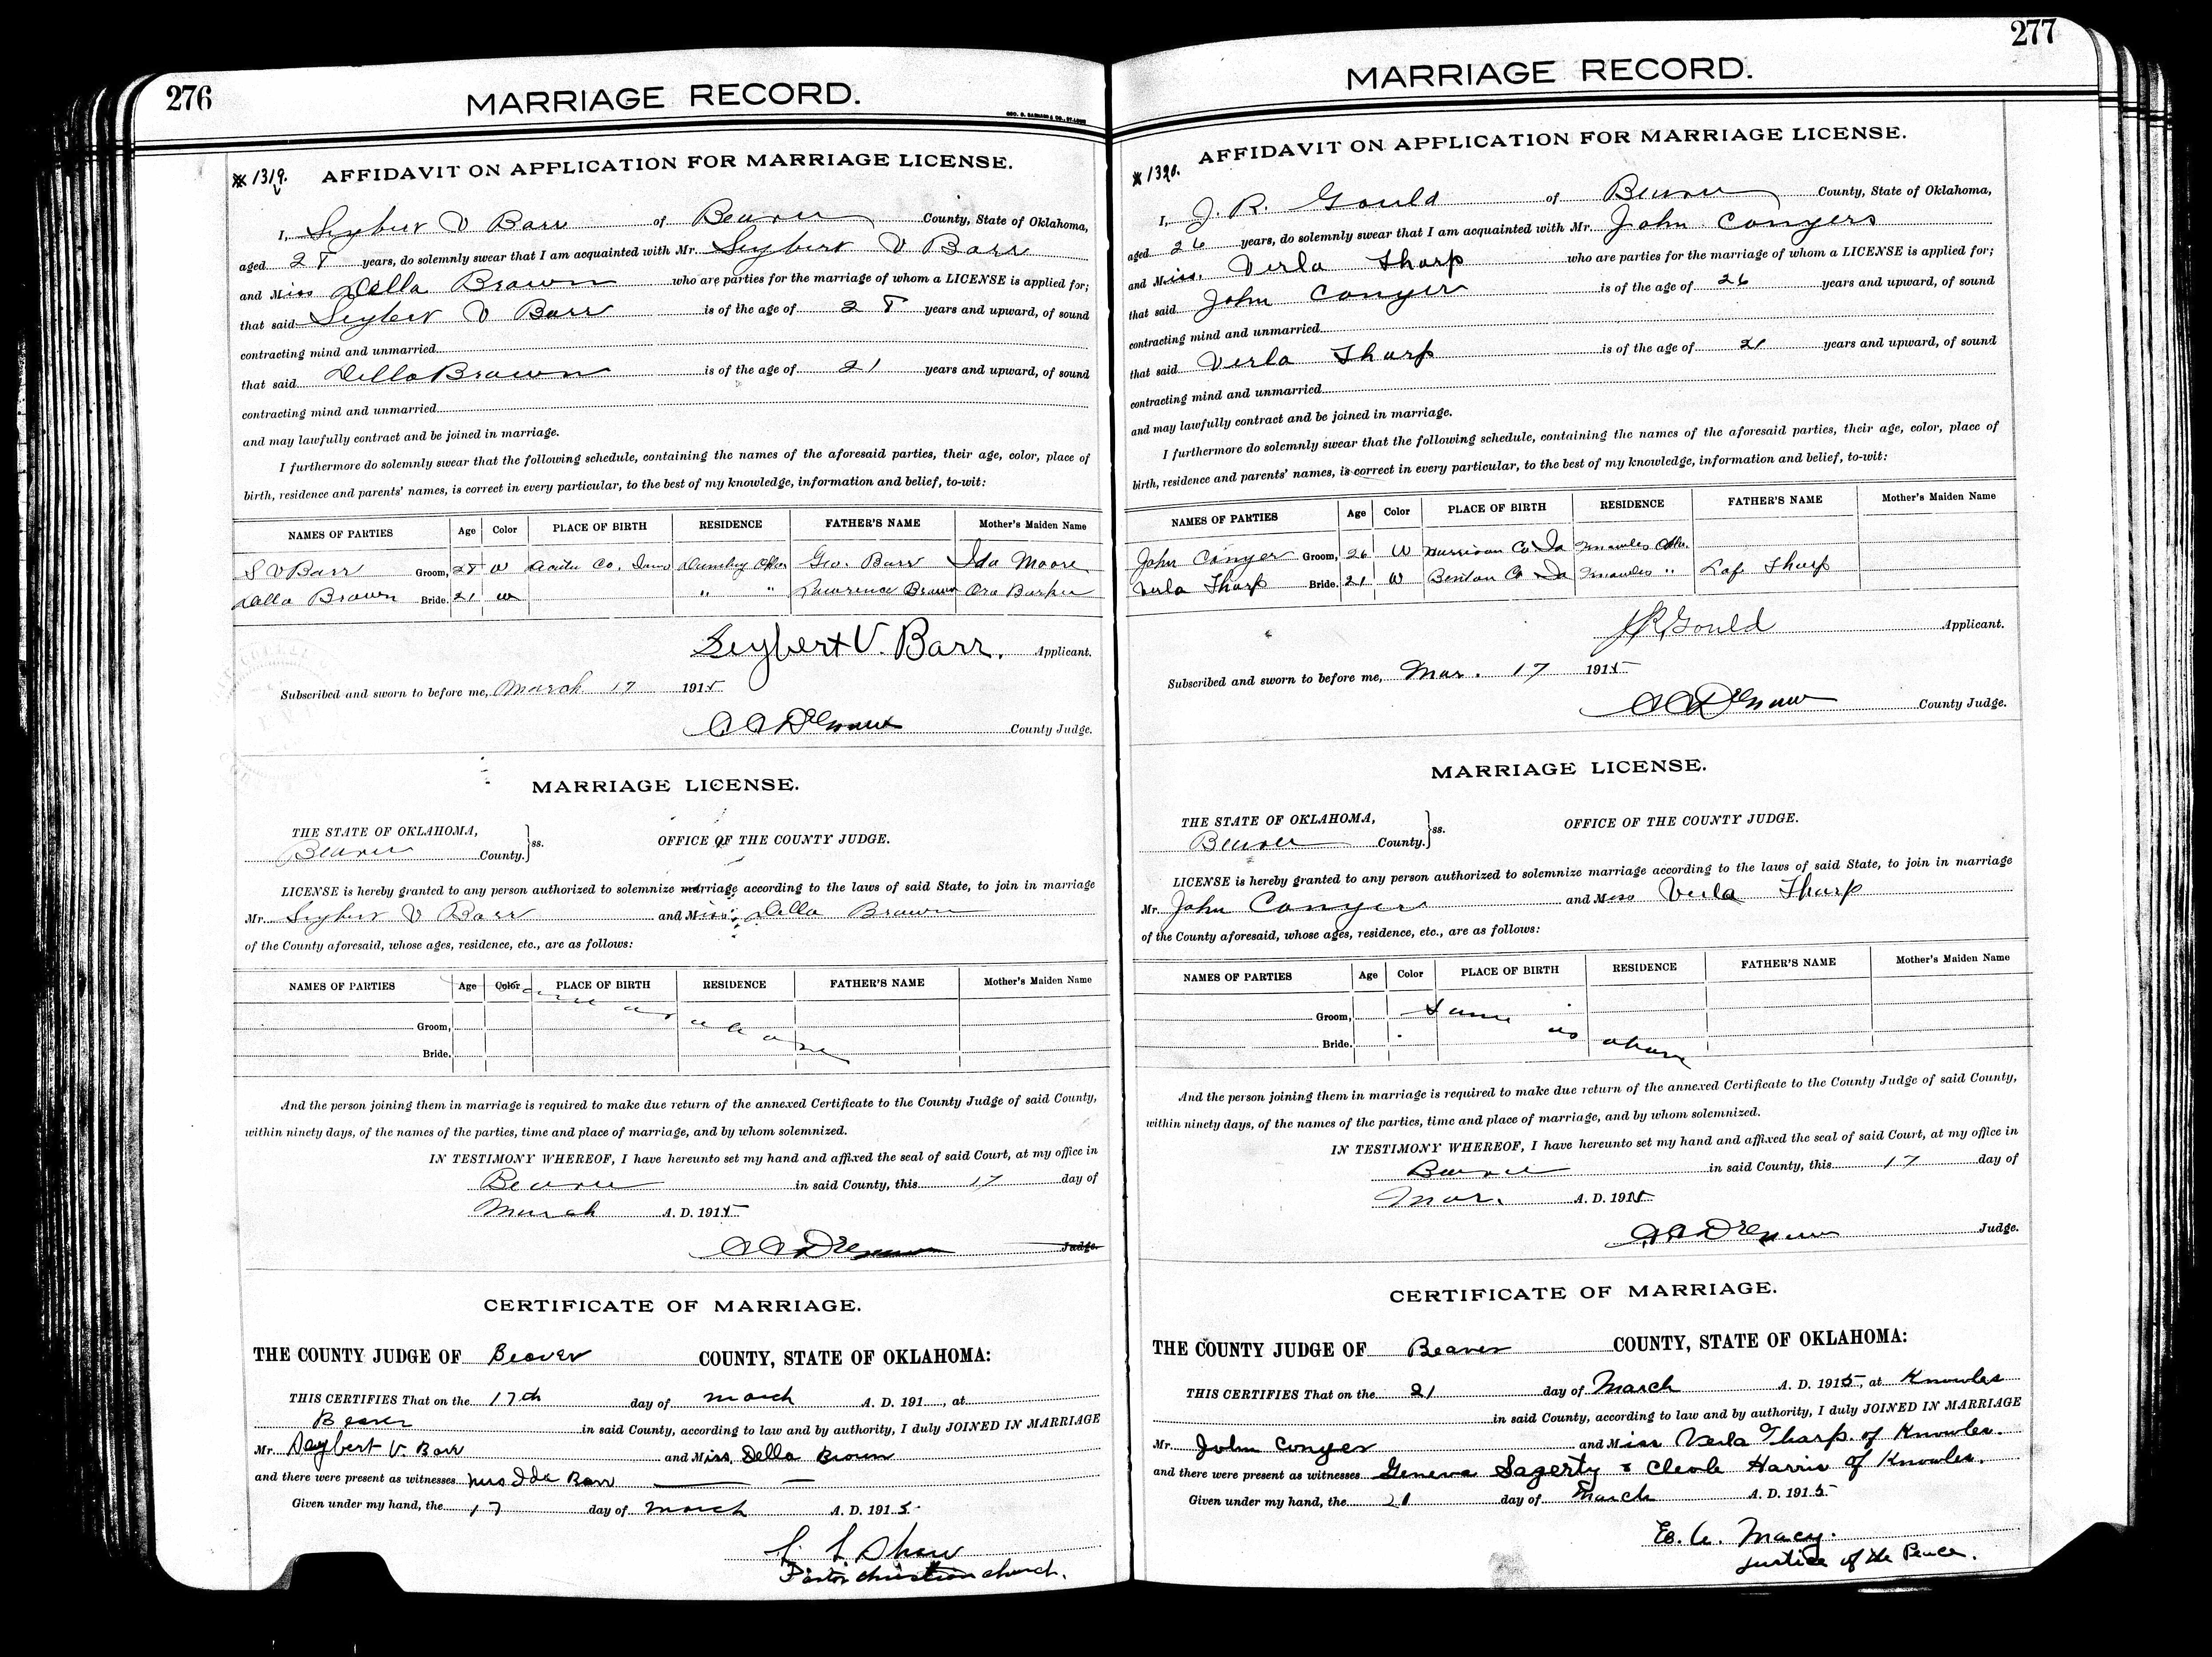 276
MARRIAGE RECORD.
GEO. D. BARNARD & CO., ST. LOUIS
# 1319.
AFFIDAVIT ON APPLICATION FOR MARRIAGE LICENSE.
I, Seybert V Barr of Beaver County, State of Oklahoma,
aged 28 years, do solemnly swear that I am acquainted with Mr. Seybert V Barr
and Miss Della Brown who are parties for the marriage of whom a LICENSE is applied for;
that said Seybert V Barr is of the age of 28 years and upward, of sound
contracting mind and unmarried
that said Della Brown is of the age of 21 years and upward, of sound
contracting mind and unmarried
and may lawfully contract and be joined in marriage.
I furthermore do solemnly swear that the following schedule, containing the names of the aforesaid parties, their age, color, place of
birth, residence and parents' names, is correct in every particular, to the best of my knowledge, information and belief, to-wit:
NAMES OF PARTIES Age Color PLACE OF BIRTH RESIDENCE FATHER'S NAME Mother's Maiden Name
S V Barr Groom, 28 W Co. Okla Geo. Barr Ida Moore
Della Brown Bride. 21 W " " Lawrence Brown Ora Barker
Seybert V. Barr. Applicant.
Subscribed and sworn to before me, March 17 1915
County Judge.
MARRIAGE LICENSE.
THE STATE OF OKLAHOMA,
Beaver County. } ss. OFFICE OF THE COUNTY JUDGE.
LICENSE is hereby granted to any person authorized to solemnize marriage according to the laws of said State, to join in marriage
Mr. Seybert V Barr and Miss Della Brown
of the County aforesaid, whose ages, residence, etc., are as follows:
NAMES OF PARTIES Age Color PLACE OF BIRTH RESIDENCE FATHER'S NAME Mother's Maiden Name
same as above
Groom,
Bride.
And the person joining them in marriage is required to make due return of the annexed Certificate to the County Judge of said County,
within ninety days, of the names of the parties, time and place of marriage, and by whom solemnized.
IN TESTIMONY WHEREOF, I have hereunto set my hand and affixed the seal of said Court, at my office in
Beaver in said County, this 17 day of
March A. D. 1915
Judge.
CERTIFICATE OF MARRIAGE.
THE COUNTY JUDGE OF Beaver COUNTY, STATE OF OKLAHOMA:
THIS CERTIFIES That on the 17th day of March A. D. 191 , at
Beaver in said County, according to law and by authority, I duly JOINED IN MARRIAGE
Mr. Seybert V. Barr and Miss. Della Brown
and there were present as witnesses Mrs Ida Barr
Given under my hand, the 17 day of March A. D. 1915.
Shaw
Pastor Christian church.
277
MARRIAGE RECORD.
# 1320.
AFFIDAVIT ON APPLICATION FOR MARRIAGE LICENSE.
I, J. R. Gould of Beaver County, State of Oklahoma,
aged 26 years, do solemnly swear that I am acquainted with Mr. John Conyers
and Miss. Verla Tharp who are parties for the marriage of whom a LICENSE is applied for;
that said John Conyer is of the age of 26 years and upward, of sound
contracting mind and unmarried
that said Verla Tharp is of the age of 21 years and upward, of sound
contracting mind and unmarried
and may lawfully contract and be joined in marriage.
I furthermore do solemnly swear that the following schedule, containing the names of the aforesaid parties, their age, color, place of
birth, residence and parents' names, is correct in every particular, to the best of my knowledge, information and belief, to-wit:
NAMES OF PARTIES Age Color PLACE OF BIRTH RESIDENCE FATHER'S NAME Mother's Maiden Name
John Conyer Groom, 26 W Harrison Co. Ia Knowles Okla.
Verla Tharp Bride. 21 W Benton Co Ia Knowles " Lafe Tharp
J R Gould Applicant.
Subscribed and sworn to before me, Mar. 17 1915
County Judge.
MARRIAGE LICENSE.
THE STATE OF OKLAHOMA,
Beaver County. } ss. OFFICE OF THE COUNTY JUDGE.
LICENSE is hereby granted to any person authorized to solemnize marriage according to the laws of said State, to join in marriage
Mr. John Conyer and Miss Verla Tharp
of the County aforesaid, whose ages, residence, etc., are as follows:
NAMES OF PARTIES Age Color PLACE OF BIRTH RESIDENCE FATHER'S NAME Mother's Maiden Name
Groom, Same as
Bride. above
And the person joining them in marriage is required to make due return of the annexed Certificate to the County Judge of said County,
within ninety days, of the names of the parties, time and place of marriage, and by whom solemnized.
IN TESTIMONY WHEREOF, I have hereunto set my hand and affixed the seal of said Court, at my office in
Beaver in said County, this 17 day of
Mar. A. D. 1915
Judge.
CERTIFICATE OF MARRIAGE.
THE COUNTY JUDGE OF Beaver COUNTY, STATE OF OKLAHOMA:
THIS CERTIFIES That on the 21 day of March A. D. 1915, at Knowles
in said County, according to law and by authority, I duly JOINED IN MARRIAGE
Mr. John Conyer and Miss Verla Tharp. of Knowles.
and there were present as witnesses Geneva Sagerty & Cleole Harris of Knowles.
Given under my hand, the 21 day of March A. D. 1915
Macy.
Justice of the Peace.